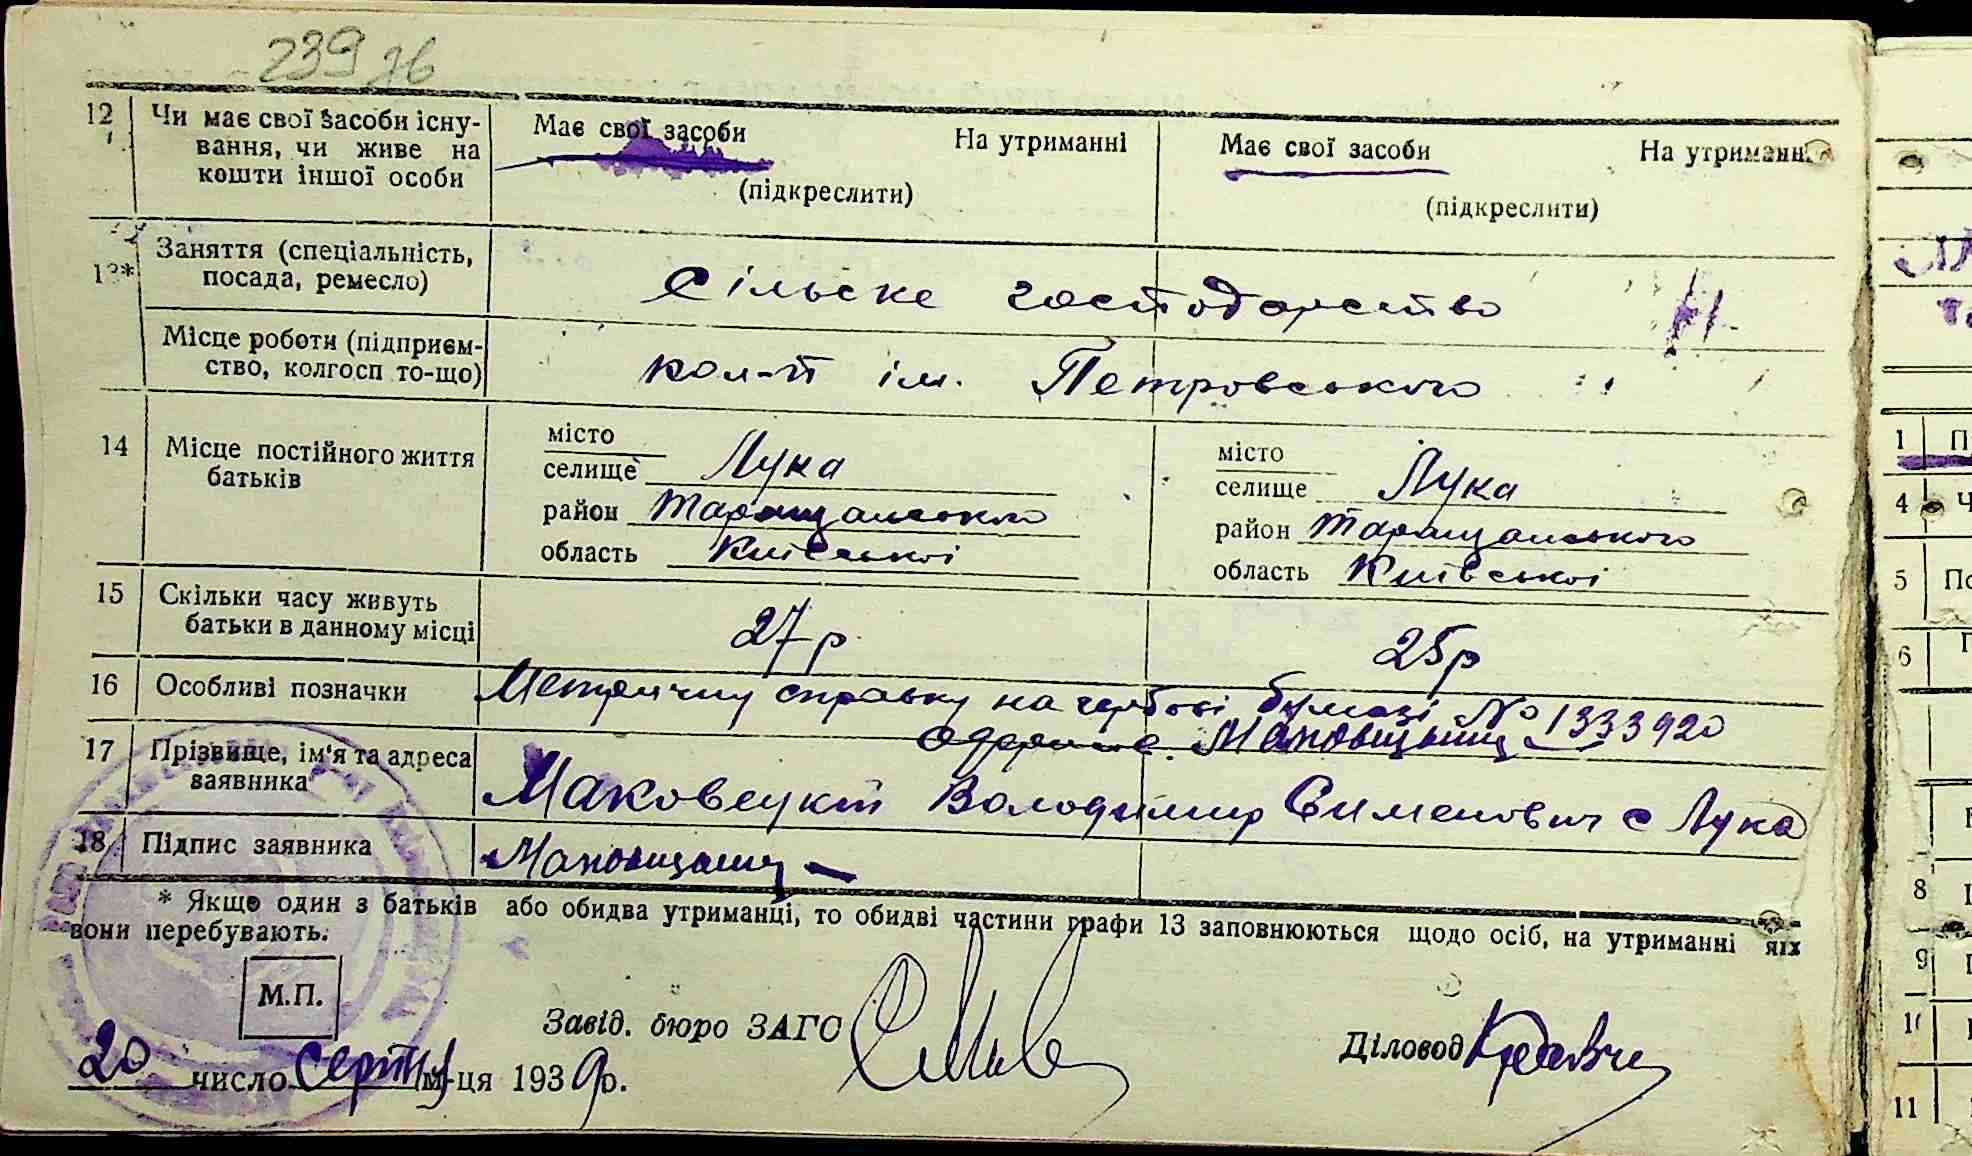 239 зв
12 Чи має свої засоби існу-
вання, чи живе на
кошти іншої особи
Має свої засоби На утриманні
(підкреслити)
Має свої засоби На утриманні
(підкреслити)
13* Заняття (спеціальність,
посада, ремесло)
Сільске господарство
Місце роботи (підприєм-
ство, колгосп то-що)
кол-п ім. Петровського
14 Місце постійного життя
батьків
місто
селище Лука
район Таращанського
область Київської
місто
селище Лука
район Таращанського
область Київської
15 Скільки часу живуть
батьки в данному місці
27 р
25 р
16 Особливі позначки
Метричну справку на гербові бумазі № 1333920
17 Прізвище, ім'я та адреса
заявника
Маковецкий Володимир Сименович с Лука
18 Підпис заявника
* Якщо один з батьків або обидва утриманці, то обидві частини графи 13 заповнюються щодо осіб, на утриманні яіх
вони перебувають.
М.П.
Завід. бюро ЗАГС
Діловод
20 число серпня м-ця 1939 р.
1 П
4 Ч
5 По
6
8
9
10
11